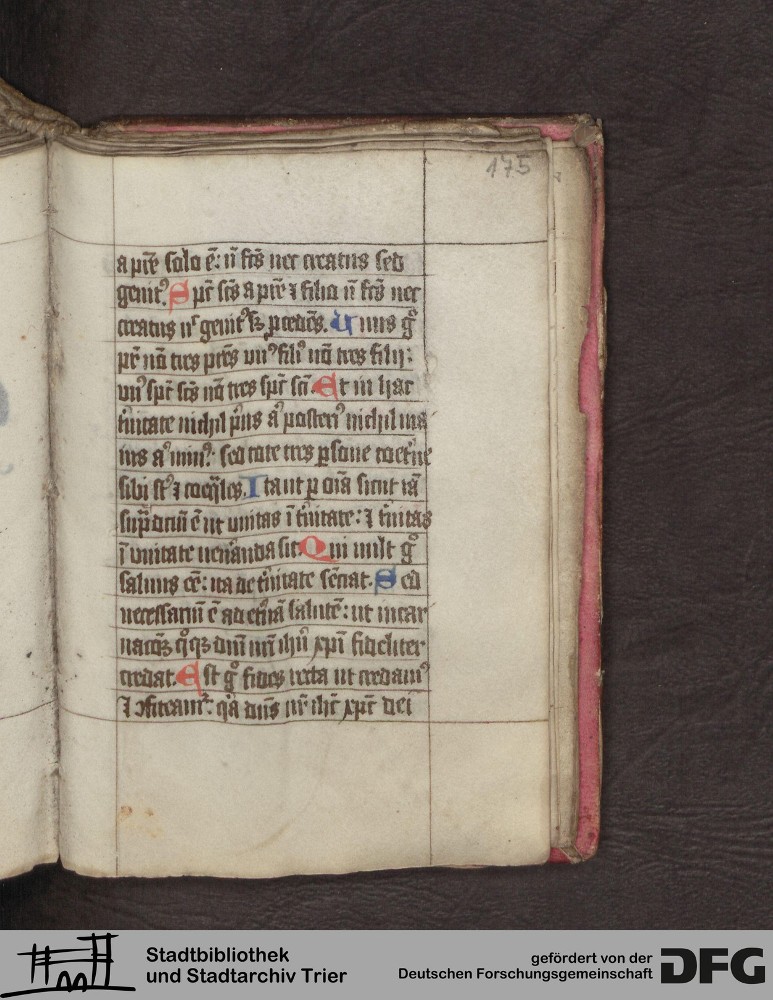 175
a pr̄e solo ē: n̄ fcūs nec creatus sed
genit⁹. Sp̄c sc̄s a pr̄e ⁊ filio n̄ fcūs nec
creatus n̄ genit⁹ sꝫ ꝓcedēs. Unus gͦ
pr̄ nō tres pr̄es vn⁹ fili⁹ nō tres filij:
vn⁹ sp̄c sc̄s nō tres sp̄c sc̄i. Et in hac
t̓nitate nichil p̓us a⁹ posteri⁹ nichil ma
ius a⁹ min⁹: sed tote tres ꝑsone coet̓ne
sibi st̄ ⁊ coeq̄les. Ita ut ꝑ oīa sicut iā
sup̄ dictū ē ut unitas ī t̓nitate: ⁊ t̓nitas
ī vnitate uen̓anda sit. Qui uult gͦ
saluus eē: ita de t̓nitate sēciat. Sed
necessariū ē ad et̓nā salutē: ut incar
nacōꝫ qͦqꝫ dn̄i nr̄i ih̄u xp̄i fideliter
credat. Est gͦ fides recta ut credam⁹
⁊ ꝯfiteam̓: qꝛ dn̄s nr̄ ih̄c xp̄c dei
Stadtbibliothek
und Stadtarchiv Trier
gefördert von der
Deutschen Forschungsgemeinschaft
DFG